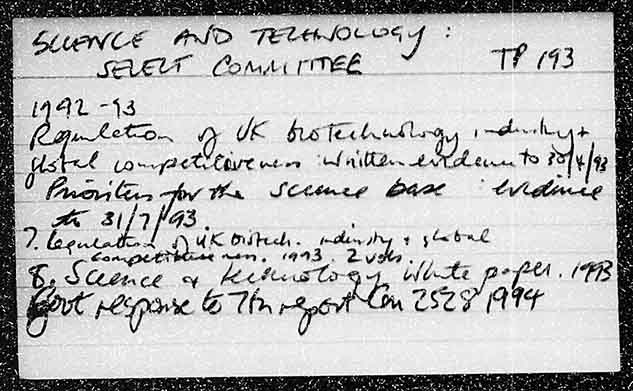 SCIENCE AND TECHNOLOGY :
SELECT COMMITTEE TP 193
1992-93
Regulation of UK biotechnology industry +
global competitiveness : written evidence to 30/4/93
Priorities for the science base : evidence
to 31/7/93
7. Regulation of UK biotech. industry + global
competitiveness. 1993. 2 vols
8. Science & technology White paper. 1993
Govt response to 7th report Cm 2528 1994